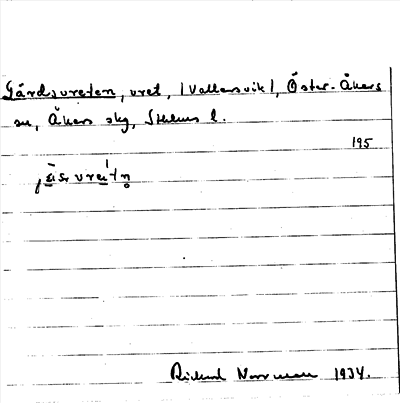 Gårdsvreten, vret, (Vallersvik), Öster-Åkers
sn, Åkers skg, Sthlms l.
195
Rickard Norrman 1934.